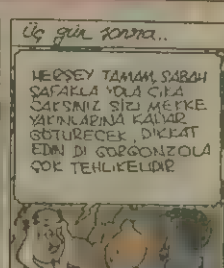 Üç gün sonra..
HERŞEY TAMAM, SABAH
ŞAFAKLA YOLA ÇIKA
CAKSINIZ SİZİ MEKKE
YAKINLARINA KADAR
GÖTÜRECEK, DİKKAT
EDİN Dİ GORGONZOLA
ÇOK TEHLİKELİDİR